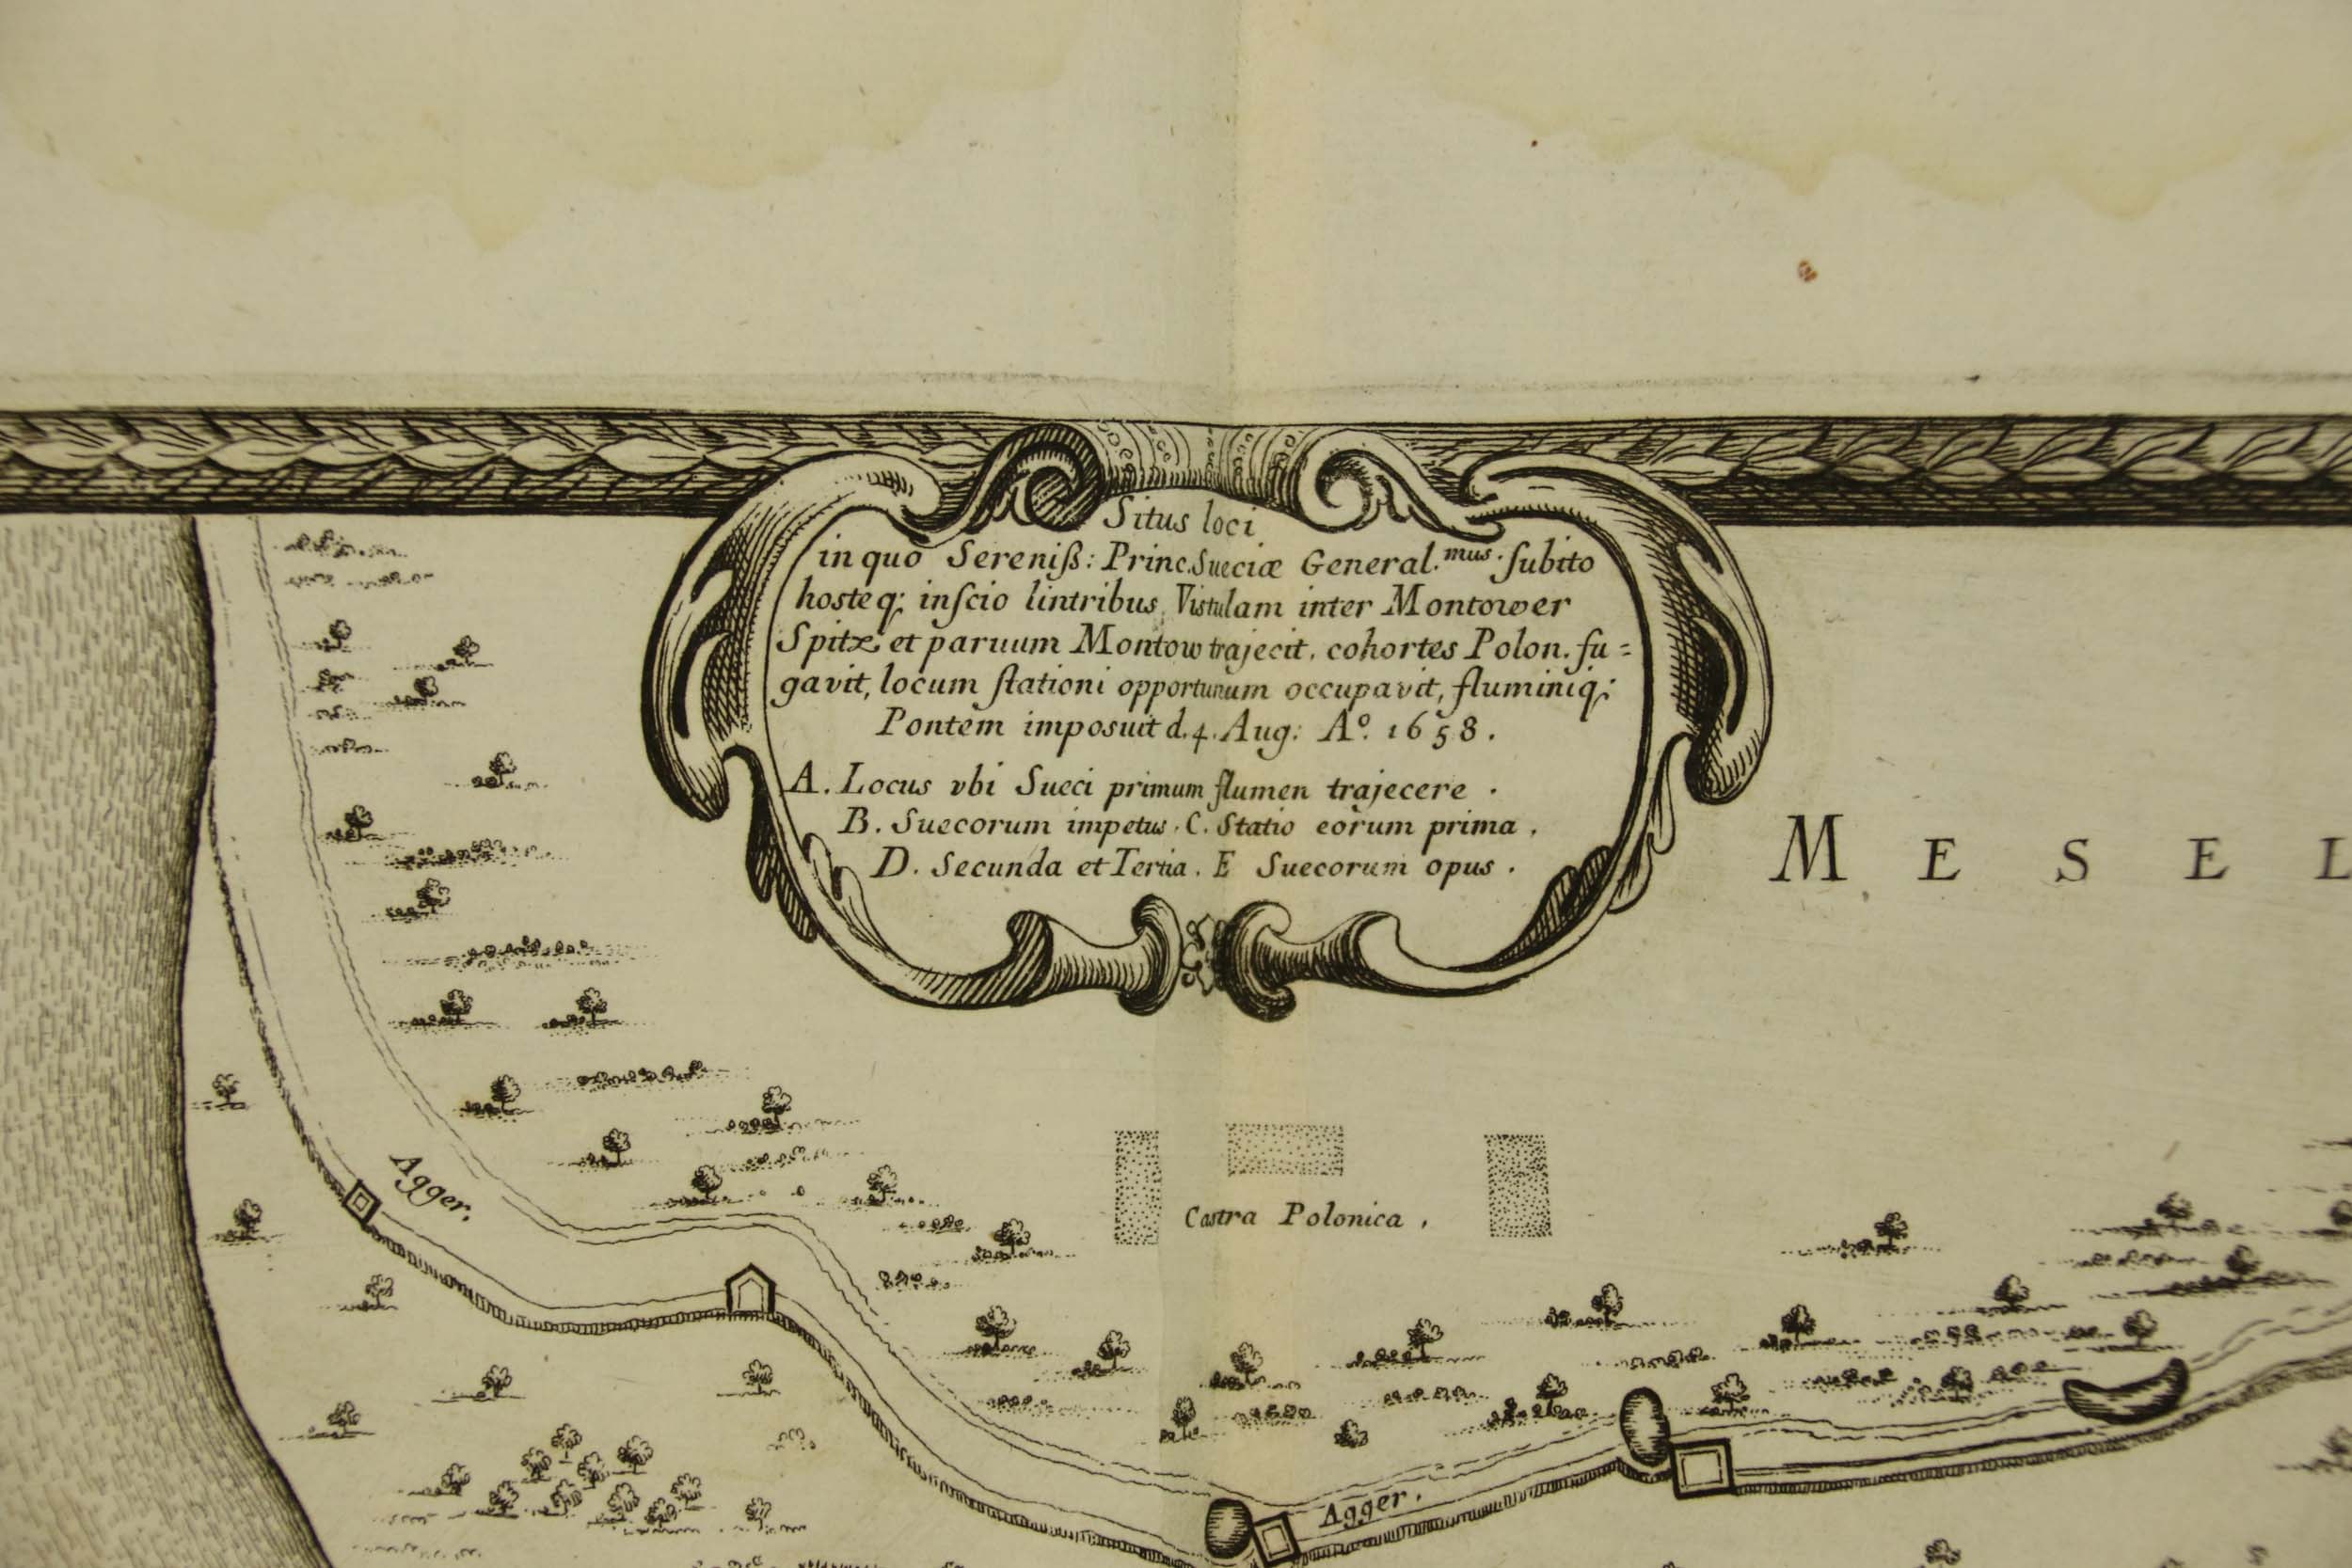 Situs loci
in quo Sereniß: Princ. Sueciæ General.mus. ſubito
hosteq; inſcio lintribus Vistulam inter Montower
Spitz et paruum Montow trajecit, cohortes Polon. fu=
gavit, locum ſtationi opportunum occupavit, fluminiq;
Pontem imposuit d. 4. Aug: Ao. 1658.
A. Locus vbi Sueci primum flumen trajecere.
B. Suecorum impetus. C. Statio eorum prima.
D. Secunda et Tertia. E Suecorum opus.
MESEL
Agger.
Castra Polonica.
Agger.